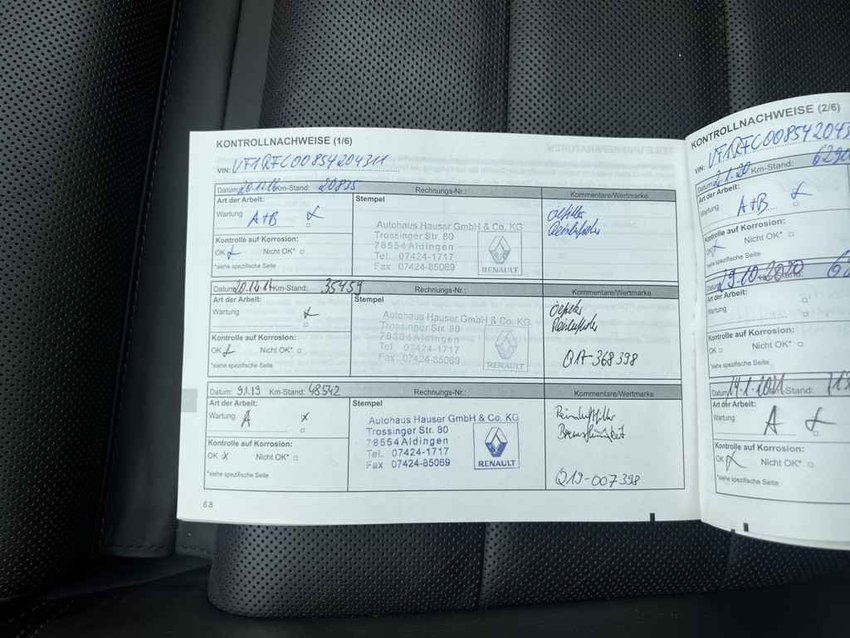 KONTROLLNACHWEISE (1/6)
VIN: VF1RFC00854204311
Datum: Km-Stand: 20835 Rechnungs-Nr.: Kommentare/Wertmarke
Art der Arbeit: Stempel
Wartung A+B x
Ölfilter
Autohaus Hauser GmbH & Co. KG
Trossinger Str. 80
78554 Aldingen
Tel. 07424-1717
Fax 07424-85069
RENAULT
Kontrolle auf Korrosion:
OK x Nicht OK*
*siehe spezifische Seite
Datum: Km-Stand: 35459 Rechnungs-Nr.: Kommentare/Wertmarke
Art der Arbeit: Stempel
Wartung x
Ölfilter
Autohaus Hauser GmbH & Co. KG
Trossinger Str. 80
78554 Aldingen
Tel. 07424-1717
Fax 07424-85069
RENAULT
Q17-368398
Kontrolle auf Korrosion:
OK x Nicht OK*
*siehe spezifische Seite
Datum: 9.1.19 Km-Stand: 48542 Rechnungs-Nr.: Kommentare/Wertmarke
Art der Arbeit: Stempel
Wartung A x
Autohaus Hauser GmbH & Co. KG
Trossinger Str. 80
78554 Aldingen
Tel. 07424-1717
Fax 07424-85069
RENAULT
Bremsflüssigkeit
Q19-007398
Kontrolle auf Korrosion:
OK x Nicht OK*
*siehe spezifische Seite
6.8
KONTROLLNACHWEISE (2/6)
VIN: VF1RFC0085420
Datum: 2.1.20 Km-Stand:
Art der Arbeit:
Wartung A+B x
Kontrolle auf Korrosion:
Nicht OK*
*siehe spezifische Seite
29.10.2020
Art der Arbeit:
Wartung
Kontrolle auf Korrosion:
OK Nicht OK*
*siehe spezifische Seite
Datum: 14.1.2021 Km-Stand:
Art der Arbeit:
Wartung A x
Kontrolle auf Korrosion:
OK x Nicht OK*
*siehe spezifische Seite